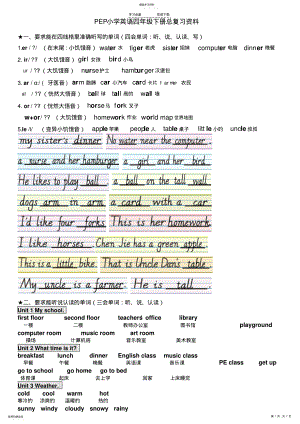 PEP小学英语四年级下册总复习资料
★一、要求能在四线格里准确听写的单词（四会单词：听、说、认读、写）
water 水 tiger 老虎 sister 姐妹
2. ir / ur
girl 女孩 bird 小鸟
nurse 护士 hamburger 汉堡包
3. ar / al
arm 胳膊 car 小汽车 card 卡片 farmer 农民
ball 球 tall 高的 wall 墙
4. or
horse 马 fork 叉子
homework 作业 world map 世界地图
5. le
apple 苹果 people 人 table 桌子 little 小的 uncle 叔叔
my sister's dinner Water near the computer.
a nurse and her hamburger a girl and her bird
He likes to play ball a ball on the tall wall
dogs arm in arm a card with a car
I'd like four forks. This is her homework
I like horses. Chen Jie has a green apple.
This is a little bike. That is Uncle Dan's table.
My uncle is a farmer. He is tall
★二、要求能听说认读的单词（三会单词：听、说、认读）
Unit 1 My school.
first floor second floor teachers' office library
一楼 二楼 教师办公室 图书馆 playground
computer room music room art room
操场 计算机房 音乐教室 美术教室
Unit 2 What time is it?
breakfast lunch dinner English class music class
早餐 中餐 晚餐 英语课 音乐课 PE class get up
go to school go home go to bed
体育课 起床 去上学 回家 上床睡觉
Unit 3 Weather.
cold cool warm hot
寒冷的 凉爽的 温暖的 热的
sunny windy cloudy snowy rainy